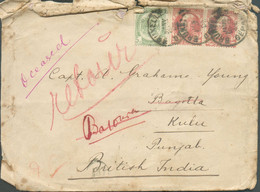 Deceased
retour
Capt. C. Grahams-Young
Bajotta
Batoura
Kulu
Punjab.
British India